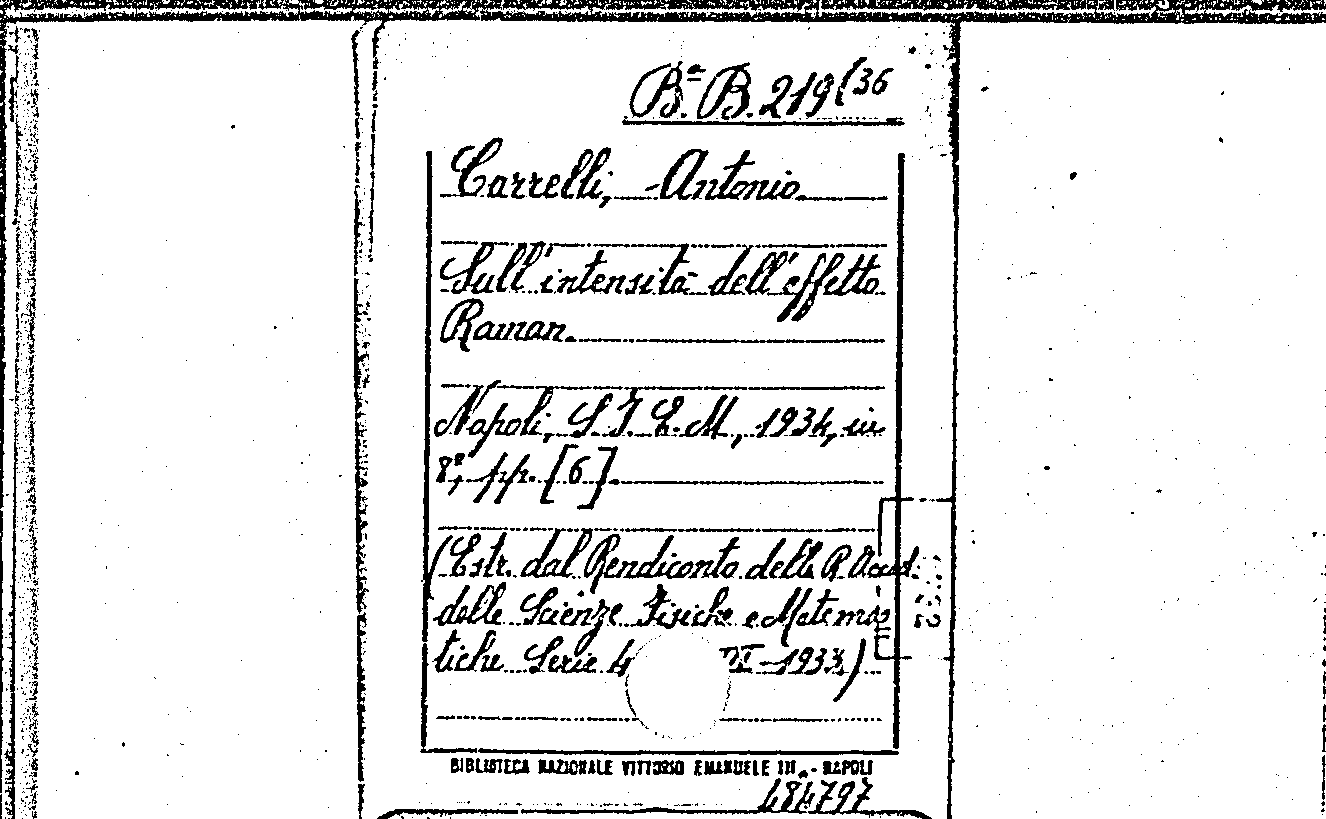 Bª. B. 219(36
Carrelli, Antonio.
Sull'intensità dell'effetto
Raman.
Napoli, S. I. E. M., 1934, in
8º, pp. [6].
(Estr. dal Rendiconto della R. Accad.
delle Scienze Fisiche e Matema
tiche Serie 4 1933)
BIBLIOTECA NAZIONALE VITTORIO EMANUELE III - NAPOLI
484797